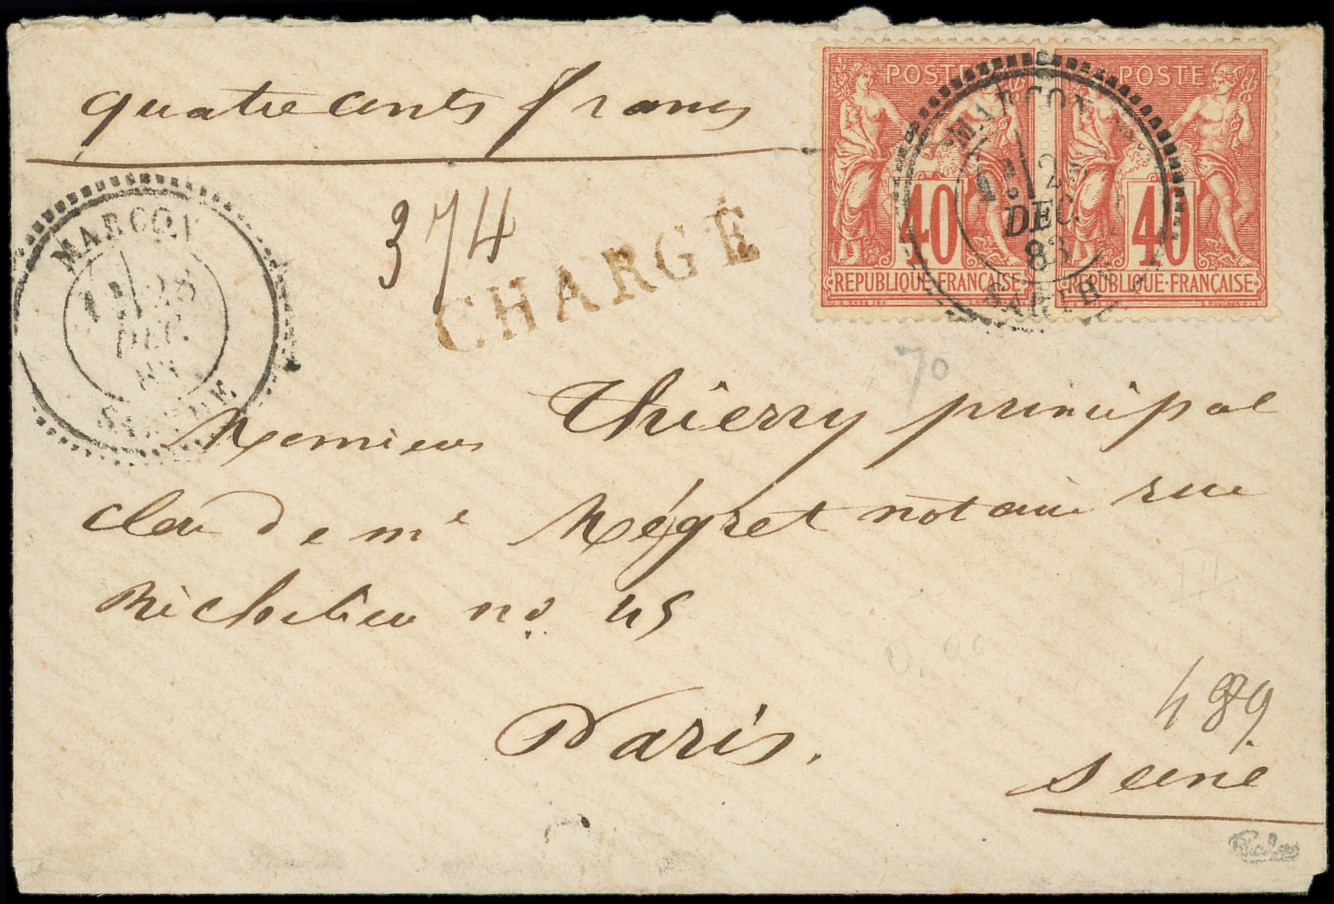 quatre cents francs
POSTE
40
REPUBLIQUE·FRANÇAISE
POSTE
40
REPUBLIQUE·FRANÇAISE
DEC.
83
MARCON
28
DEC.
SARTHE
374
CHARGÉ
70
Monsieur Thierry principal
clerc de me Mégret notaire rue
Richelieu no. 45
Paris.
489
Seine